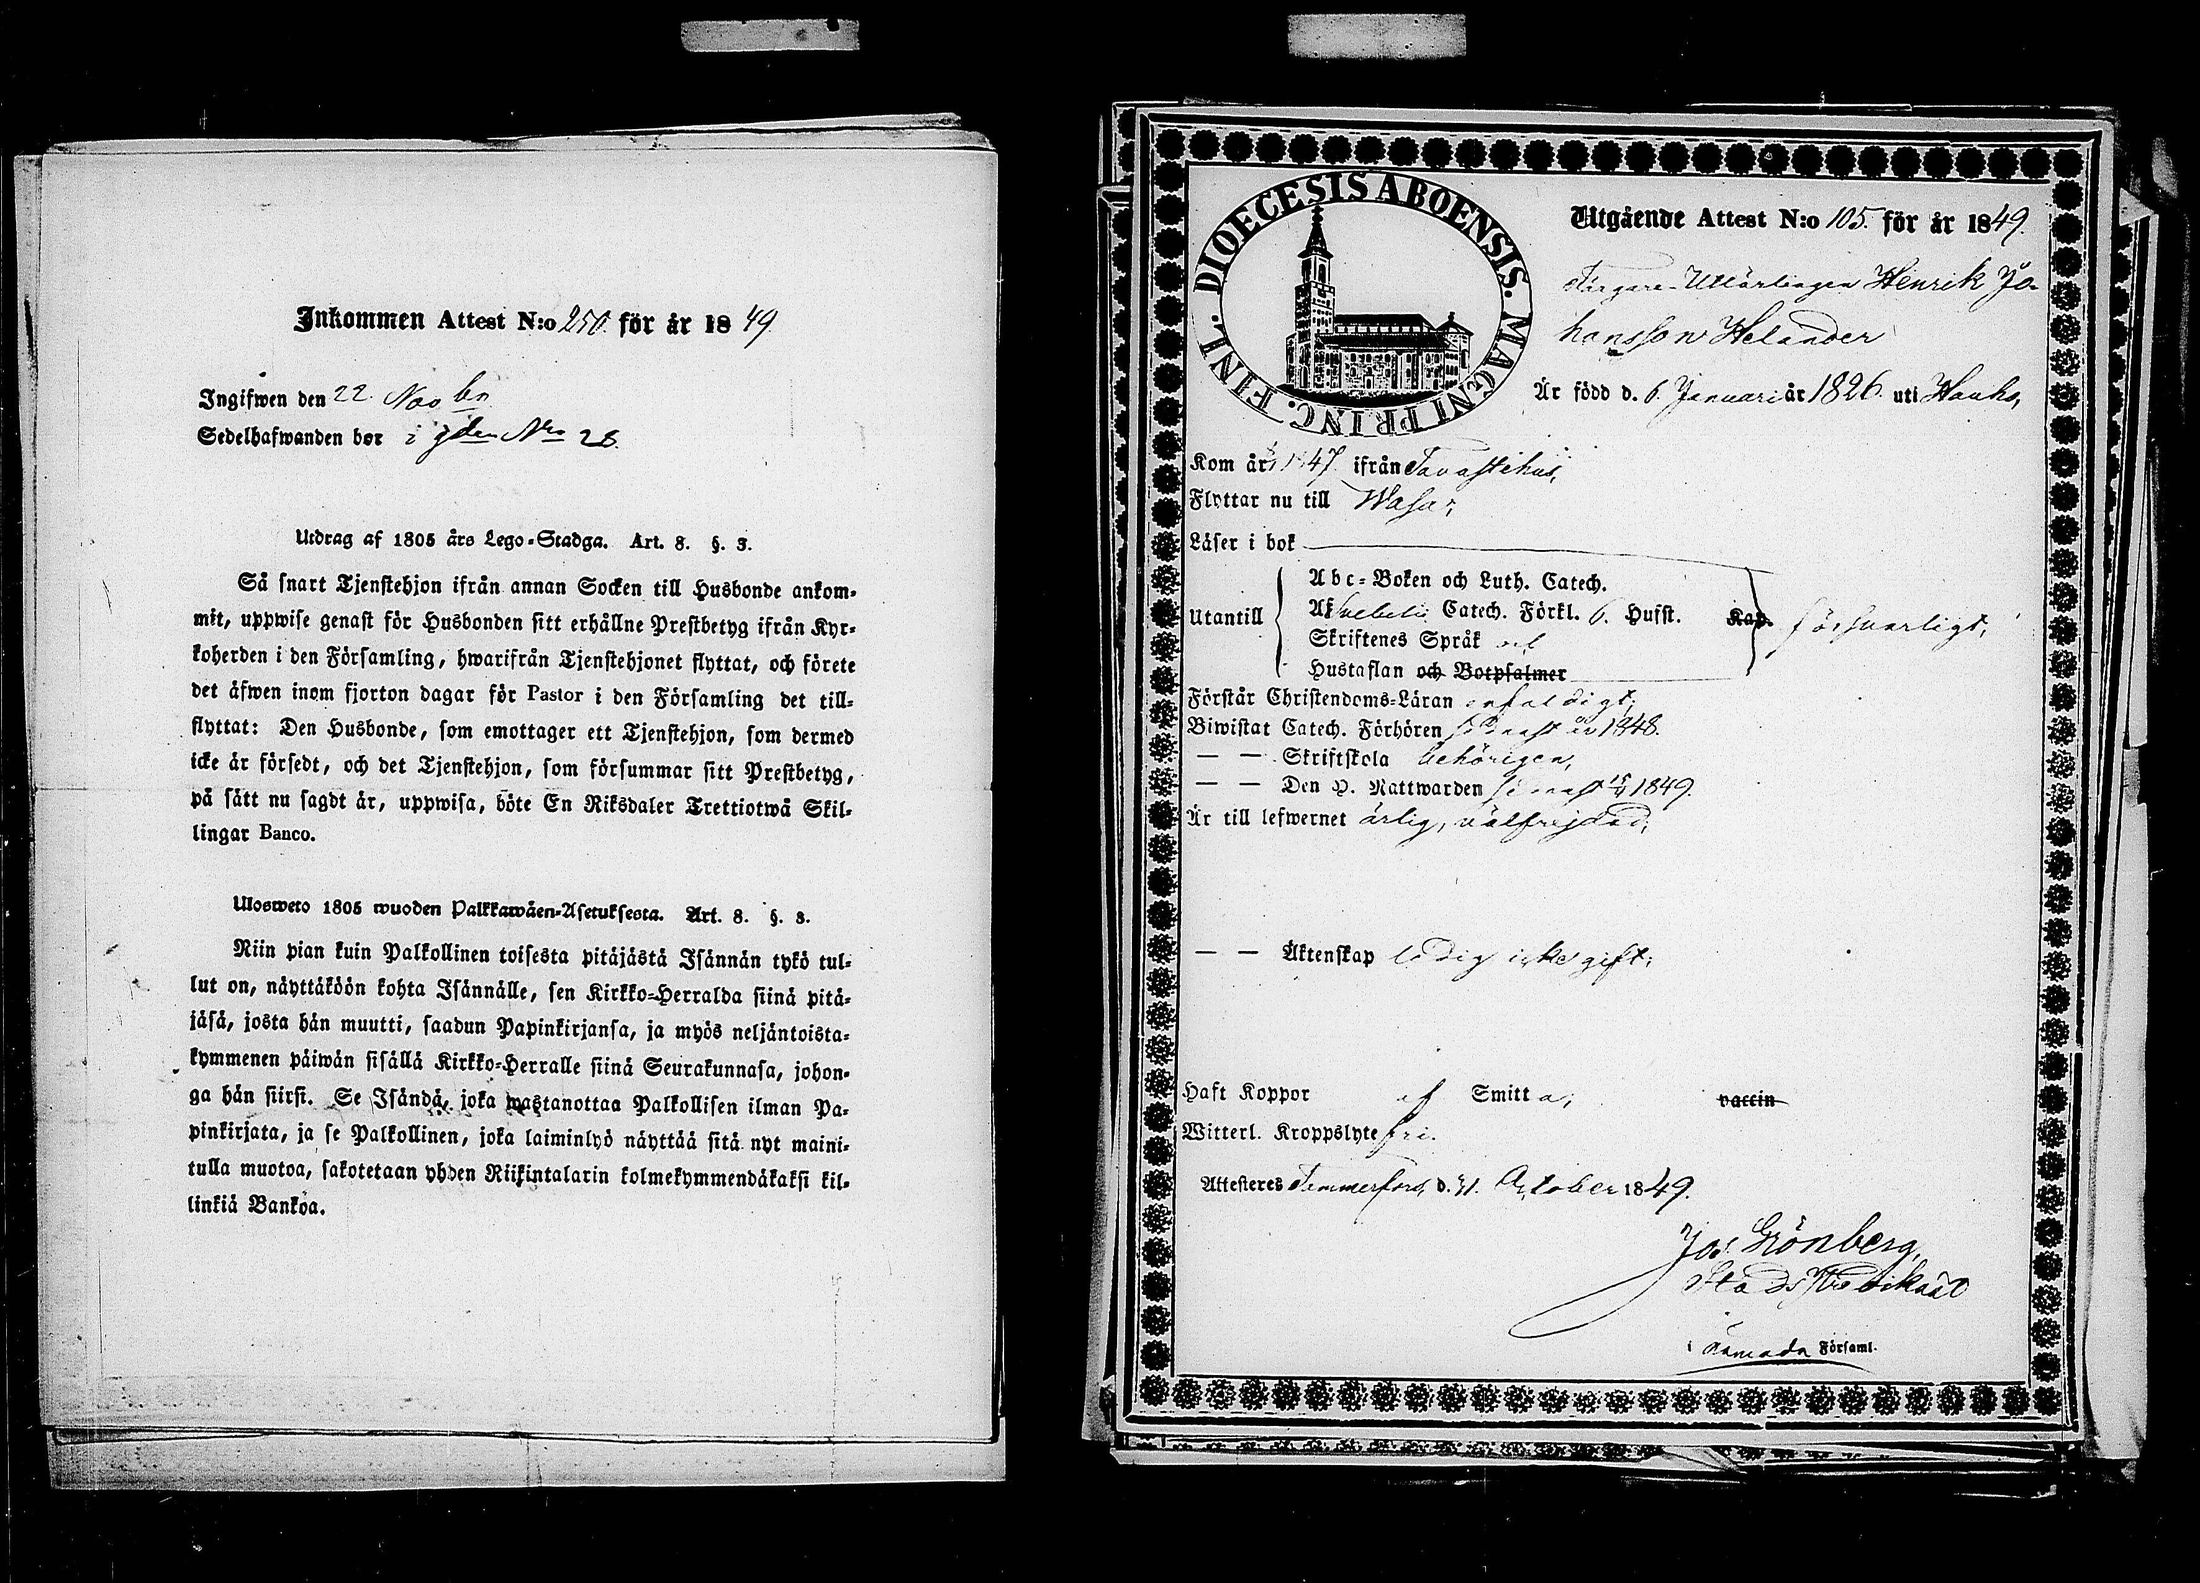 Inkommen Attest N:o 250. för år 1849
Ingifwen den 22. Novbr
Sedelhafwanden bor i gden Nro 28
Utdrag af 1805 års Lego-Stadga. Art. 8. §. 3.
Så snart Tjenstehjon ifrån annan Socken till Husbonde ankom-
mit, uppwise genast för Husbonden sitt erhållne Prestbetyg ifrån Kyr-
koherden i den Församling, hwarifrån Tjenstehjonet flyttat, och förete
det äfwen inom fjorton dagar för Pastor i den Församling det till-
flyttat: Den Husbonde, som emottager ett Tjenstehjon, som dermed
icke är försedt, och det Tjenstehjon, som försummar sitt Prestbetyg,
på sätt nu sagdt är, uppwisa, böte En Riksdaler Trettiotwå Skil-
lingar Banco.
Ulosweto 1805 wuoden Palkkawäen-Asetuksesta. Art. 8. §. 3.
Niin pian kuin Palkollinen toisesta pitäjästä Isännän tykö tul-
lut on, näyttäköön kohta Isännälle, sen Kirkko-Herralda siinä pitä-
jäsä, josta hän muutti, saadun Papinkirjansa, ja myös neljäntoista-
kymmenen päiwän sisällä Kirkko-Herralle siinä Seurakunnasa, johon-
ga hän siirsi. Se Isändä, joka wastanottaa Palkollisen ilman Pa-
pinkirjata, ja se Palkollinen, joka laiminlyö näyttää sitä nyt maini-
tulla muotoa, sakotetaan yhden Riikintalarin kolmekymmendäkaksi kil-
linkiä Bankoa.
DIOECESIS ABOENSIS. MAGNI PRINC. FINL.
Utgående Attest N:o 105. för år 1849.
Färgare-Utlärlingen Henrik Jo-
hansson Helander
Är född d. 6. Januari år 1826. uti Hauho,
Kom år 1847. ifrån Tavastehus,
Flyttar nu till Wasa;
Läser i bok
Abc-Boken och Luth. Catech.
Utantill Af Svebelii Catech. Förkl. 6. Hufst. Kap. försvarligt,
Skriftenes Språk
Hustaflan och Botpsalmer
Förstår Christendoms-Läran enfaldigt,
Biwistat Catech. Förhören sednast år 1848.
— — Skriftskola behörigen,
— — Den H. Nattwarden sednast 1849.
Är till lefwernet ärlig, välfrejdad;
— — Äktenskap ledig icke gift;
Haft Koppor af Smitta; vaccin
Witterl. Kroppslyte fri.
Attesteres Tammerfors, d. 31. October 1849.
Jos. Grönberg,
Stads Predikant
i nämnda Församl.